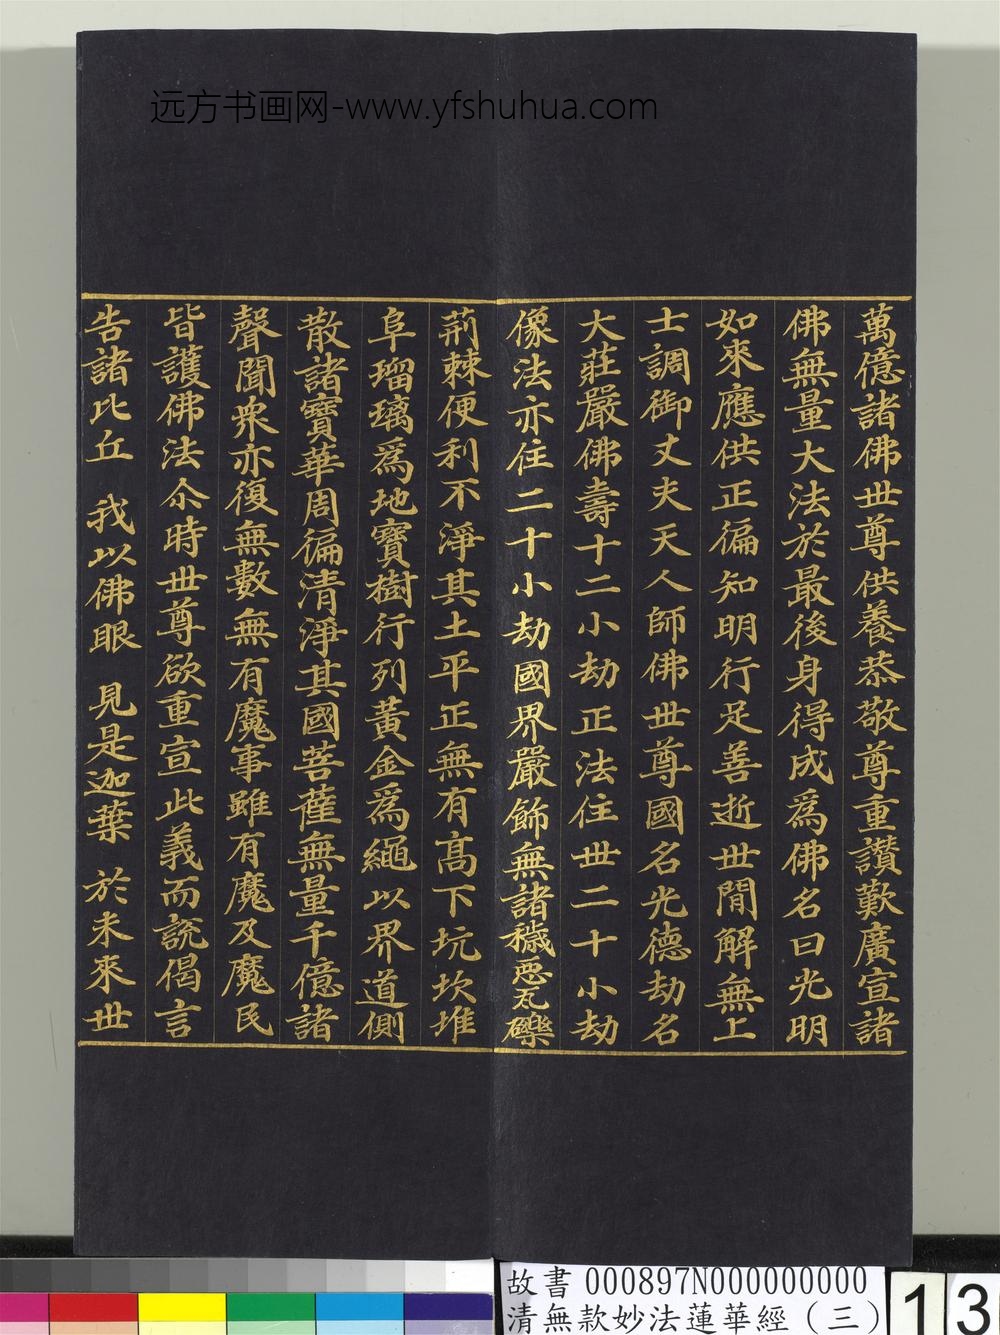 远方书画网-www.yfshuhua.com
萬億諸佛世尊供養恭敬尊重讃歎廣宣諸
佛無量大法於最後身得成爲佛名曰光明
如來應供正徧知明行足善逝世間解無上
士調御丈夫天人師佛世尊國名光德劫名
大莊嚴佛壽十二小劫正法住世二十小劫
像法亦住二十小劫國界嚴飾無諸穢惡瓦礫
荊棘便利不淨其土平正無有高下坑坎堆
阜瑠璃爲地寶樹行列黃金爲繩以界道側
散諸寶華周徧清淨其國菩薩無量千億諸
聲聞衆亦復無數無有魔事雖有魔及魔民
皆護佛法尒時世尊欲重宣此義而説偈言
告諸比丘 我以佛眼 見是迦葉 於未來世
故書 000897N000000000
清無款妙法蓮華經（三）
13